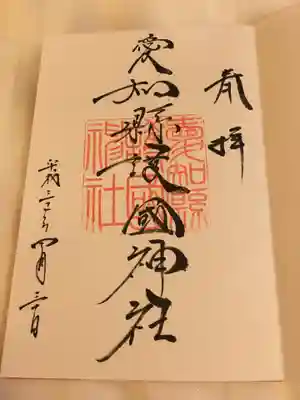 奉拝
愛知縣護國神社
愛知縣
護國
神社
平成三十 四月三十日